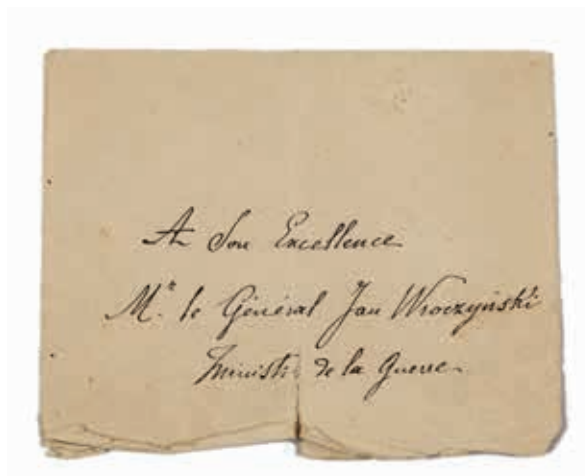 A Son Excellence
Mr. le Général Jan Wroczyński
Ministre de la Guerre